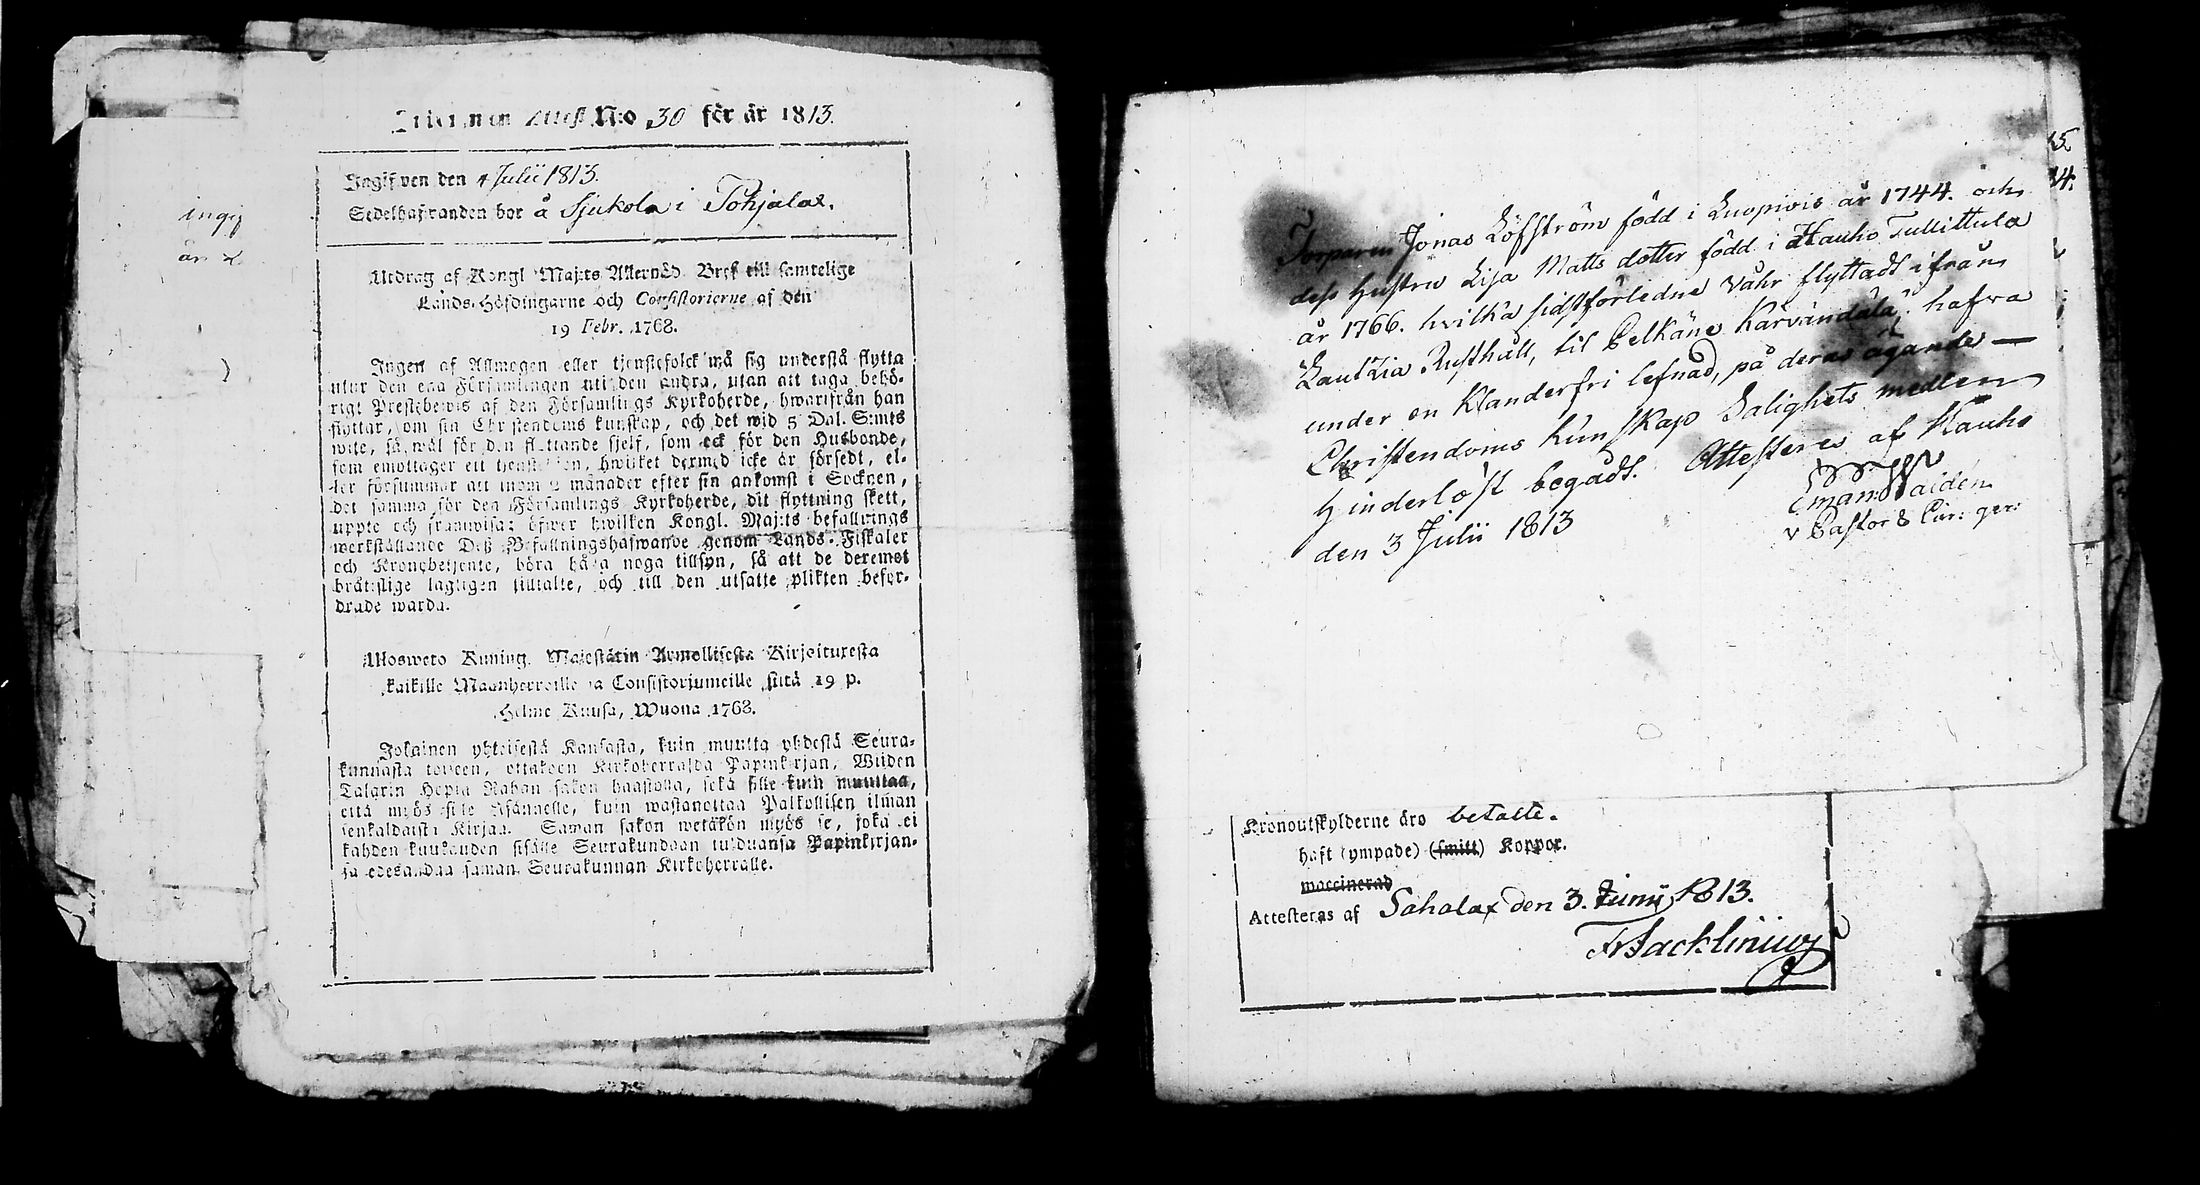 Attest N:o 30 för år 1813.
Ingifven den 4 Julii 1813.
Sedelhafvanden bor å Sjukola i Pohjalax.
Utdrag af Kongl Maj:ts Allernåd. Bref till samtelige
Lands-Höfdingarne och Consistorierne af den
19 Febr. 1768.
Ingen af Allmogen eller tjenstefolck må sig understå flytta
utur den ena Församlingen uti den andra, utan att taga behö-
rigt Prestebewis af den Församlings Kyrkoherde, hwarifrån han
flyttar, om sin Christendoms kunskap, och det wid 5 Dal. S:mts
wite, så wäl för den flyttande sjelf, som ock för den Husbonde,
som emottager ett tjenstehion, hwilket dermed icke är försedt, el-
ler försummar att inom 2 månader efter sin ankomst i Socknen,
det samma för den Församlings Kyrkoherde, dit flyttning skett,
uppte och framwisa: öfwer hwilken Kongl. Maj:ts befallnings
werkställande Deß Befallningshafwande genom Lands-Fiskaler
och Kronobetjente, böra hafa noga tillsyn, så att de deremot
bråtslige lagligen tilltalte, och till den utsatte plikten befor-
drade warda.
Ulosweto Kuning. Majestätin Armollisesta Kirjoituxesta
kaikille Maanherroille ja Consistoriumeille siitä 19 p.
Helme Kuusa, Wuona 1768.
Jokainen yhteisestä Kansasta, kuin muutta yhdestä Seura-
kunnasta toiseen, ottakoon Kirkoherralda Papinkirjan, Wiiden
Talarin Hopia Rahan sakon haastolla, sekä sille kuin muuttaa,
että myös sille Isännelle, kuin wastanottaa Palkollisen ilman
senkaldaista Kirjaa. Saman sakon wetäkön myös se, joka ei
kahden kuukauden sisälle Seurakundaan tulduansa Papinkirjan-
sa edesandaa saman Seurakunnan Kirkoherralle.
ingif
år
Torparen Jonas Löfström född i Luopiois år 1744. och
dess Hustru Lisa Matts dotter född i Hauho Tullittula
år 1766. hvilka sidstförledne Våhr flyttadt ifrån
Lautzia Rusthåll, til Pelkäne Kärvändälä, hafva
under en klanderfri lefnad, på deras ägande
Christendoms kunskap Salighets medlen
Hinderlöst begådt. Attesteres af Hauho
den 3 Julii 1813
Eman: Waidén
v Pastor & Cur: ger:
Kronoutskylderne äro betalte.
haft (ympade) (smitt) Koppor.
waccinerad
Attesteras af Sahalax den 3. Junii 1813.
Fr Backliniius